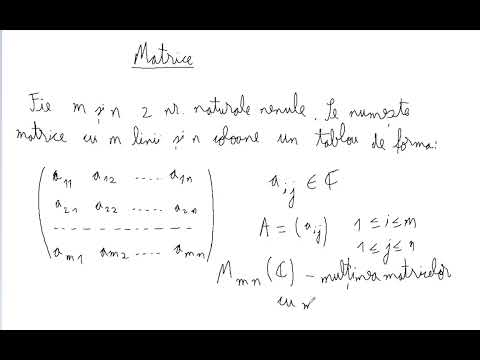 Matrice
Fie m și n 2 nr. naturale nenule. Se numește
matrice cu m linii și n coloane un tablou de forma:
a11 a12 ..... a1n
a21 a22 ..... a2n
- - - - - - - - - - - - - -
am1 am2 ..... amn
aij ∈ ℂ
A = (aij) 1 ≤ i ≤ m
1 ≤ j ≤ n
Mmn(ℂ) – mulțimea matricelor
cu